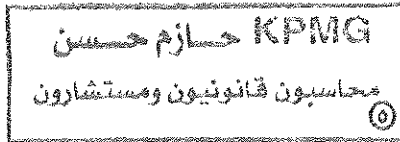 KPMG حازم حسن
محاسبون قانونيون ومستشارون
٥